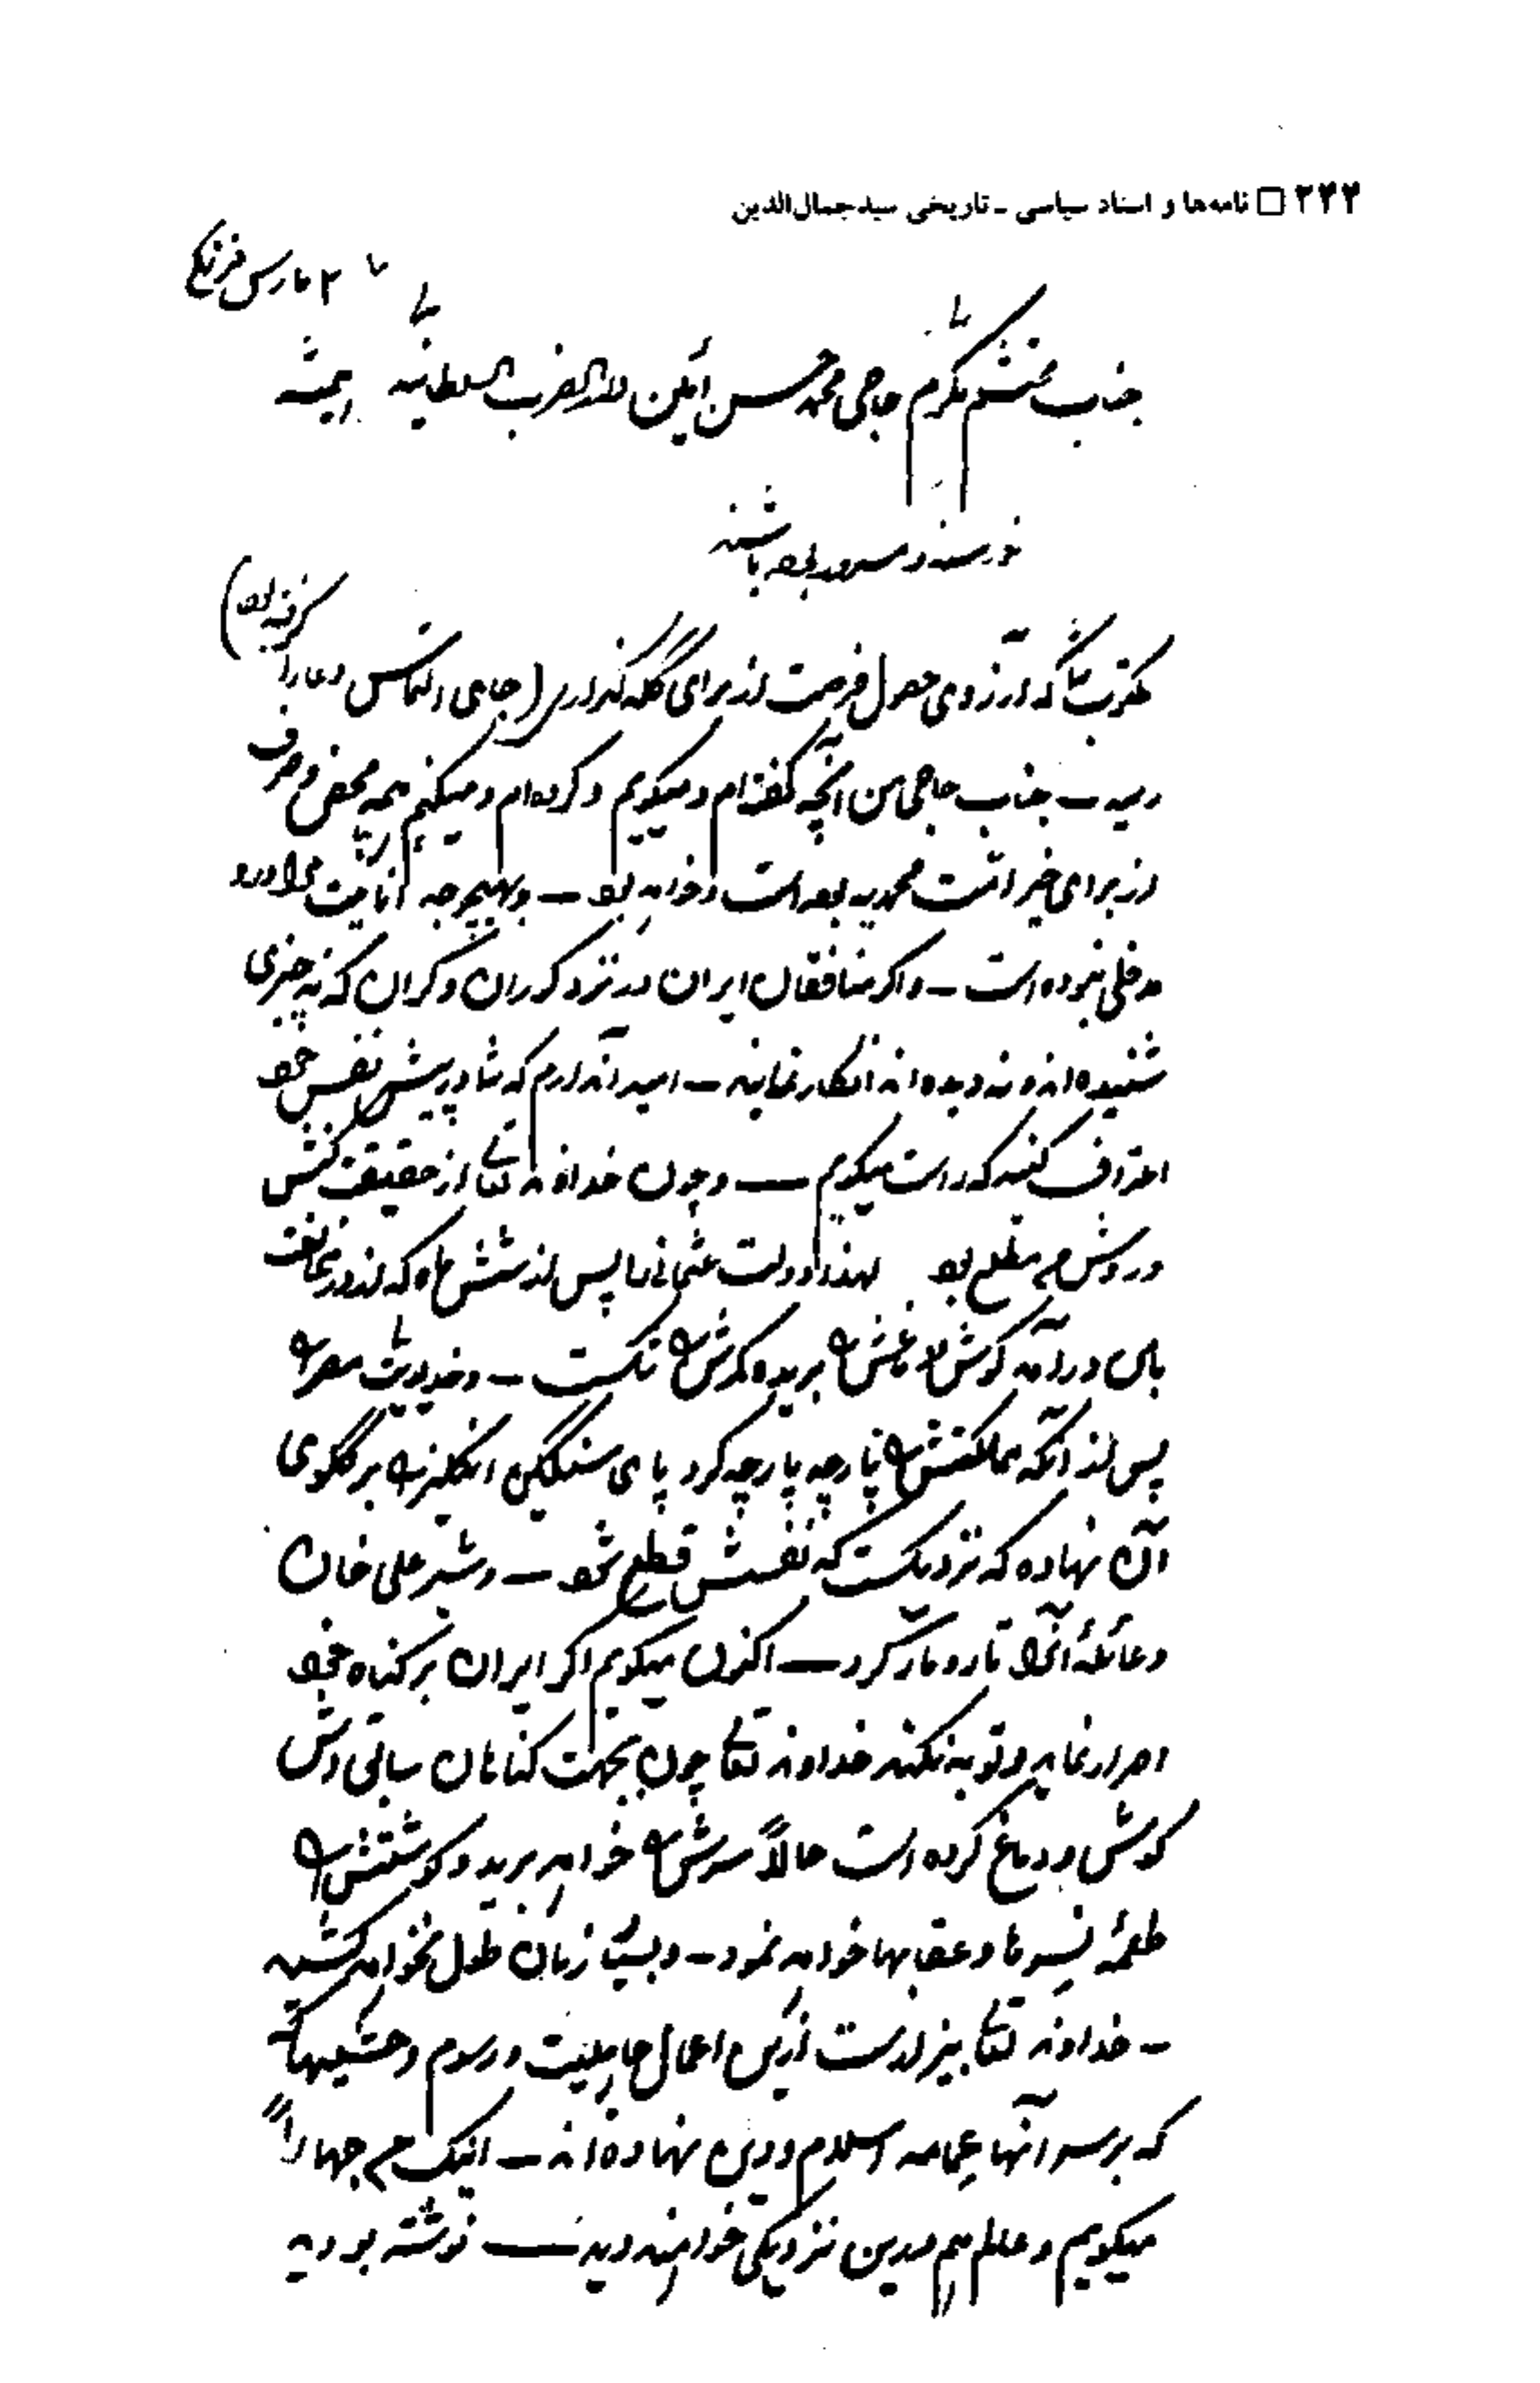 ۲۳۲ □ نامه‌ها و اسناد سیاسی - تاریخی سیدجمال‌الدین
۲ مارس فرنگی
جناب محتشم مکرم حاجی محمد حسن امین دار الضرب السلطانیه همیشه
خورسند و مسرور بوده باشند
مکتوب شما که آرزوی حصول فرصت از برای گله گذاری (جای التماس دعا را گرفته بود)
رسید - جناب حاجی من آنچه گفته‌ام و میگویم و کرده‌ام و میکنم همه محض و صرف
از برای خیر امت محمدیه بوده است و خواهد بود - و بهیچوجه انانیت مرا در او
مدخلی نبوده است - و اگر منافقان ایران در نزد کوران و کران که نه چیزی
شنیده‌اند و نه دیده‌اند انکار نمایند - امید آن دارم که شما در پیش نفس خود
اعتراف کنید که راست میگویم - و چون خداوند تعالی از حقیقت کنش
و روش من مطلع بود لهذا دولت عثمانی را پس از شش ماه که از در مخالفت
با من درآمد گوش و دماغش را بریده کمرش را شکست - و خدیویت مصر را
پس از آنکه مملکتش را پارچه پارچه کرد پای سنگین انگلیز را بر گلوی
آن نهاده که نزدیکست که نفسش قطع شود - و شیر علی خان
و عائلهٔ آنرا تار و مار کرد - اکنون میگویم اگر ایران بر گناه خود
اصرار نماید و توبه نکند خداوند تعالی چون بجهت گناهان سابق اش
گوش و دماغ کرده است حالاً سرش را خواهد برید و گوشتش را
طعمهٔ نسرها و عقابها خواهد نمود - و بسیار زمان طول نخواهد کشید
- خداوند تعالی بیزار است از این اعمال جاهلیت و رسوم وحشیهائیکه
که بر سر آنها عمامه اسلام و دین نهاده‌اند - اینک من جهاراً
میگویم و عالم هم در این نزدیکی خواهند دید - نوشته بودید